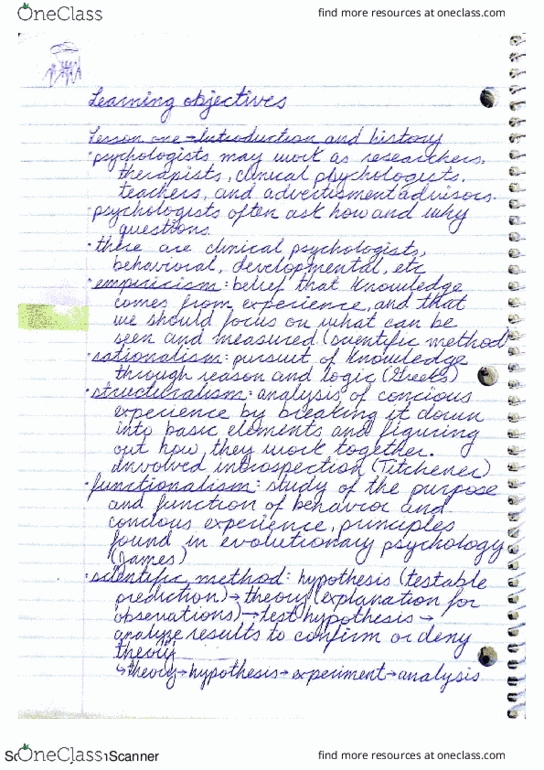 OneClass
find more resources at oneclass.com
Learning objectives
Lesson one - Introduction and history
• psychologists may work as researchers,
therapists, clinical psychologists,
teachers, and advertisment advisors.
• psychologists often ask how and why
questions.
• there are clinical psychologists,
behavioral, developmental, etc
• empiricism: belief that knowledge
comes from experience, and that
we should focus on what can be
seen and measured (scientific method)
• rationalism: pursuit of knowledge
through reason and logic (Greeks)
• structuralism: analysis of concious
experience by breaking it down
into basic elements and figuring
out how they work together.
Involved introspection (Titchener)
• functionalism: study of the purpose
and function of behavior and
concious experience, principles
found in evolutionary psychology
(James)
• scientific method: hypothesis (testable
prediction) → theory (explanation for
obserations) → test hypothesis →
analyze results to confirm or deny
theory
↳ theory → hypothesis → experiment → analysis
OneClass
Scanner
find more resources at oneclass.com